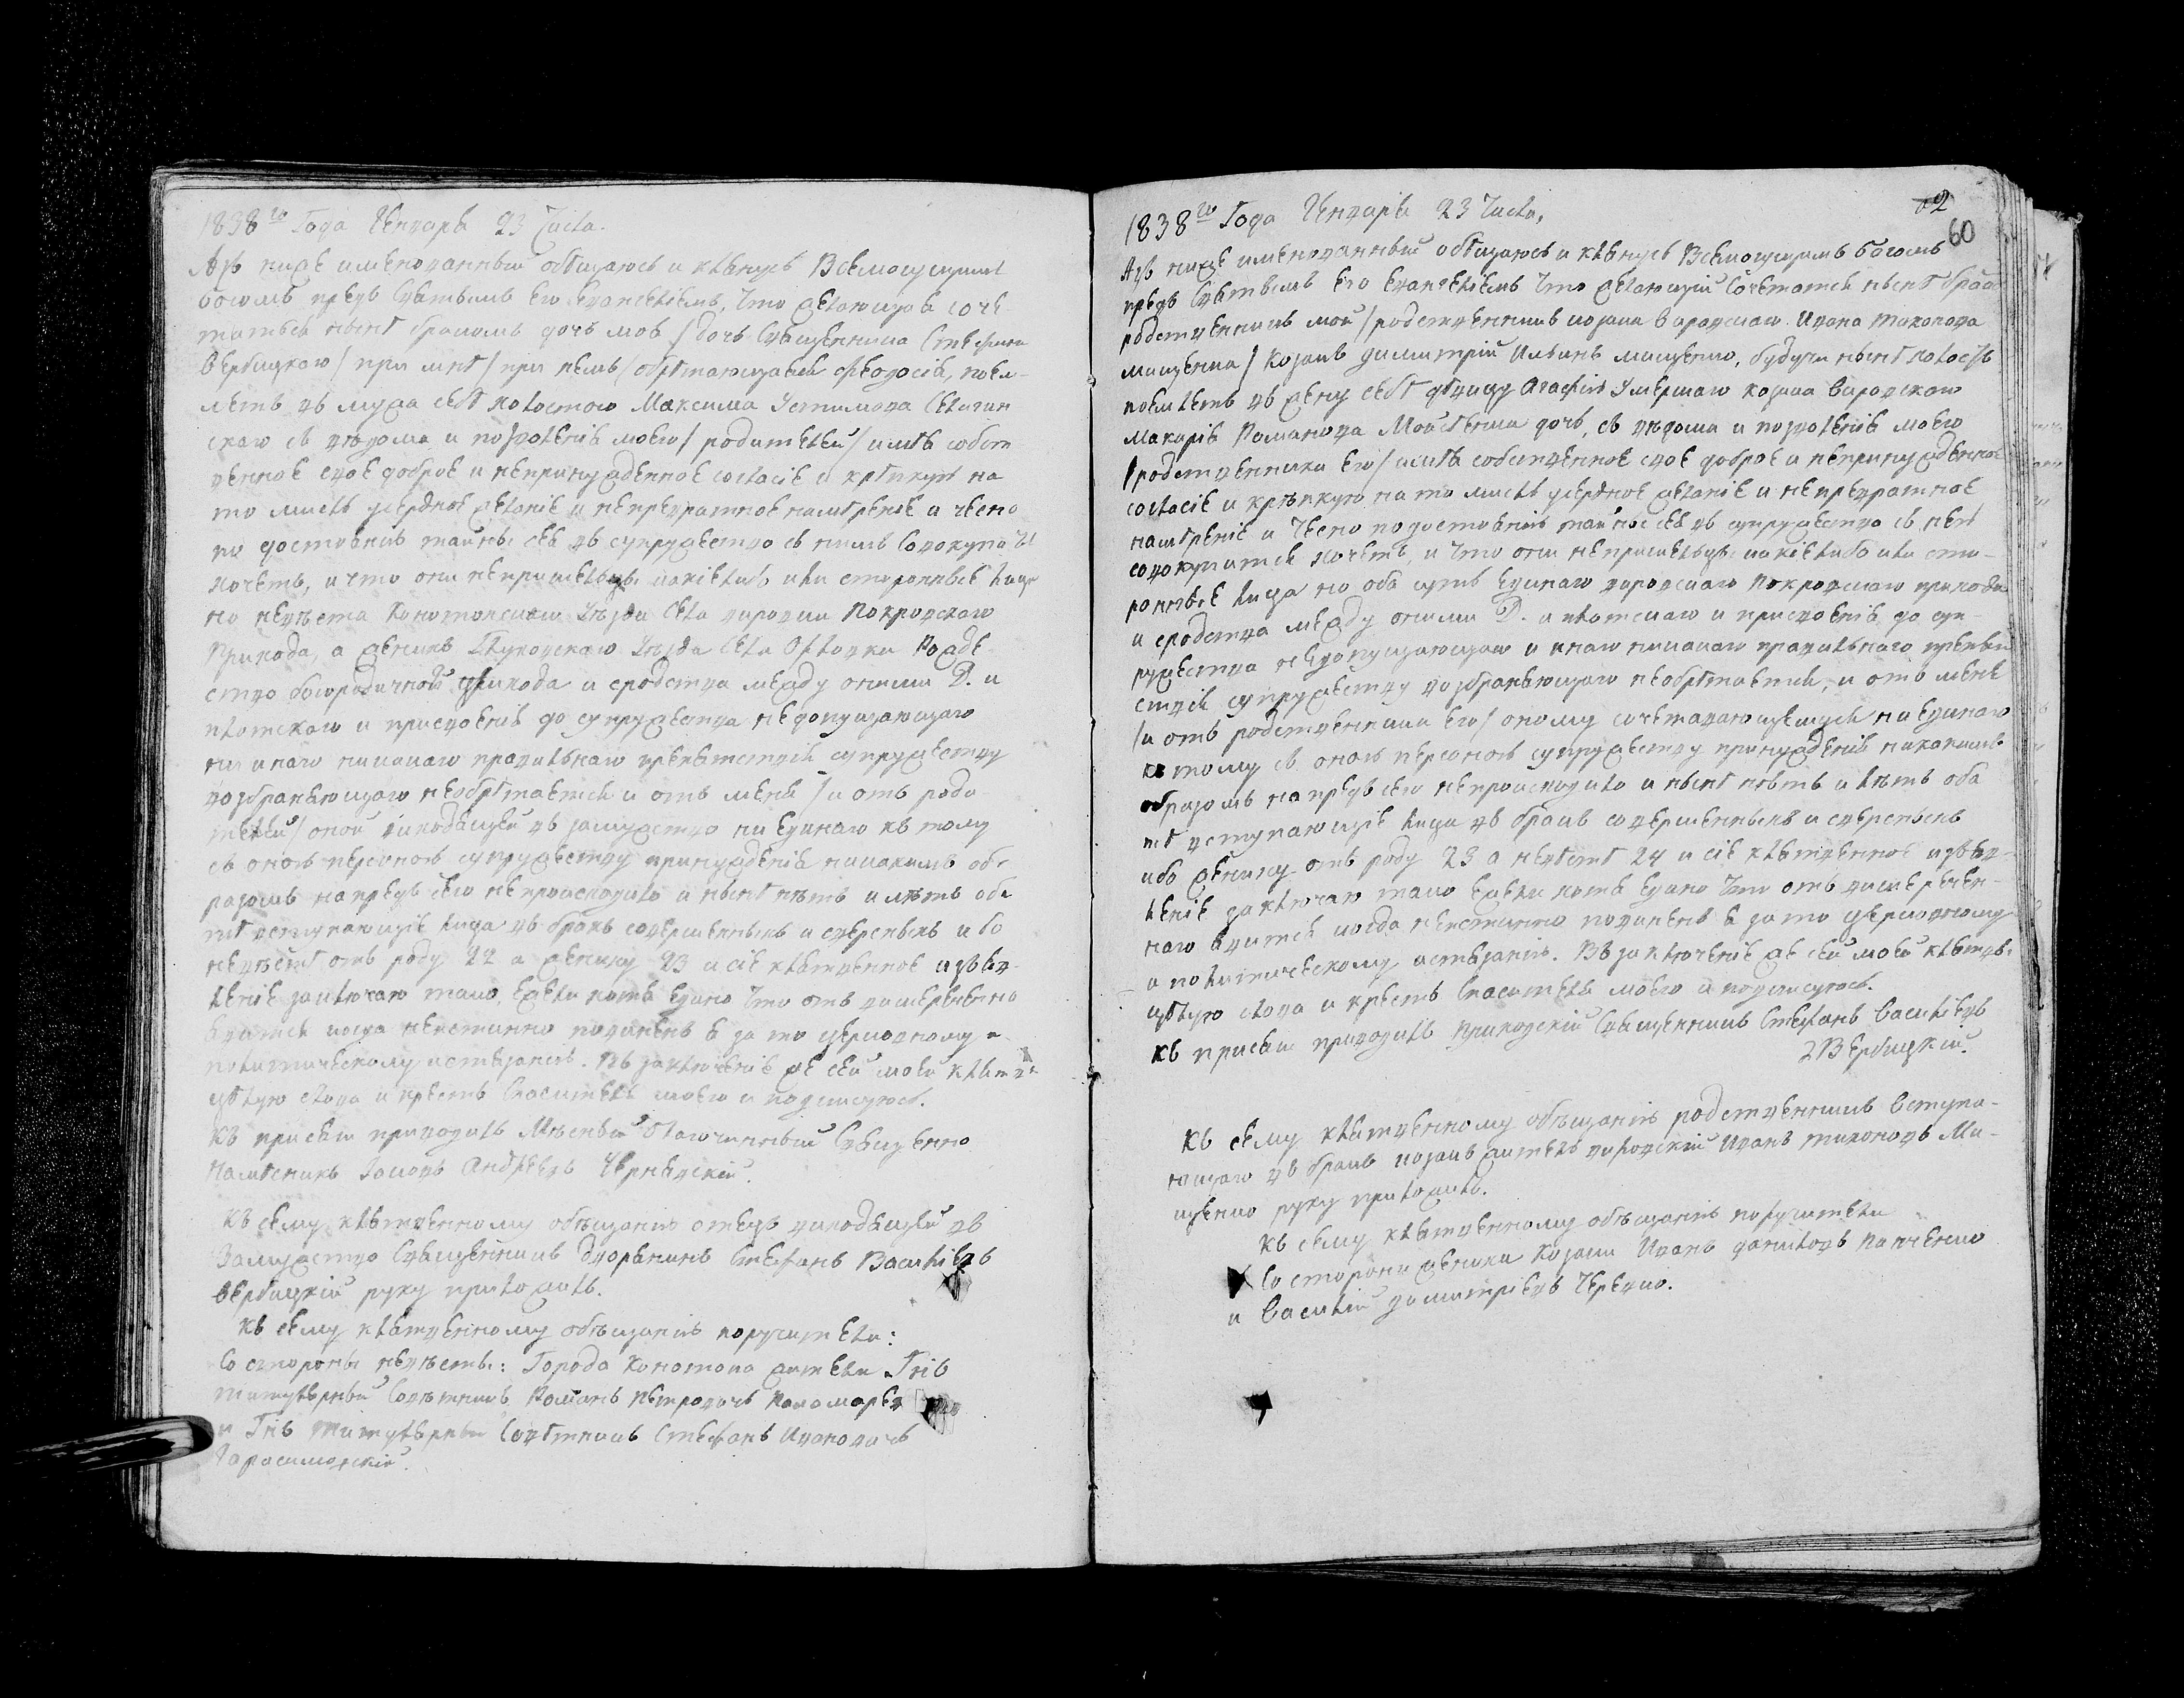 1838го Года Генваря 23 Числа.
Азъ ниже именованный обѣщаюсь и клянусь Всемощущимъ
богомъ предъ Святымъ Его Евангелиемъ, что желающая соче-
таться нынѣ бракомъ дочь моя / дочь Священника Стефана
Вербицкаго / при мнѣ / при немъ / обрѣтающаяся Феодосія, поем-
летъ въ мужа себѣ холостого Максима Устимова
скаго съ вѣдома и позволенія моего / родителей / имѣя собст
венное свое доброе и непринужденное согласіе и крѣпкую на
то мысль усердное желаніе и непревратное намѣреніе и чесно
по достоянію тайны сея въ супружество съ нимъ совокупи
хочетъ, и что они непришельцы какіе либо или сторонные лица
но невѣста Конотопскаго Уѣзда Села Вировки Покровскаго
Прихода, а женихъ Глуховскаго Уѣзда Села Орловки Рожде
ство богородичной прихода и сродства между оними Д. и
плотскаго и присвоенія до супружества недопущающаго
ни инаго никакаго правильнаго препятствія супружеству
возбраняющаго необрѣтается и отъ мене / и отъ роди
телей / оной выходящей въ замужство ни единаго къ тому
съ оною персоною супружеству принужденія никакимъ об
разомъ напредъ сего непроисходило и нынѣ нѣтъ и лѣтъ оби
тѣ вступающіе лица въ бракъ совершенныхъ и сверсныхъ ибо
невѣстѣ отъ роду 22 а жениху 23 и сіе клятвенное изъяв-
леніе заключаю тако, ежели хотя едино что отъ вишереченно
явится когда неистинно повиненъ я за то церковному и
политическому истязанію. Въ заключеніе же сей моей клятвы
цѣлую слова и крестъ Спасителя моего и подписуюсь.
Къ присяги приводилъ Мѣсный благочинный Священно
намѣсникъ Іаковъ Андреевъ Чернявскій.
Къ сему клятвенному обѣщанію отецъ виходящей въ
Замужство Священникъ дворянинъ Стефанъ Васильевъ
Вербицкій руку приложилъ.
Къ сему клятвенному обѣщанію поручители:
Со стороны невѣсты: Города Конотопа жители Гнъ
титулярный Совѣтникъ Романъ Петровичъ Пономарев
и Гнъ Титулярный Совѣтникъ Стефанъ Ивановичъ
Гарасимовскій.
2
60
1838го Года Генваря 23 Числа,
Азъ ниже именованный обѣщаюсь и клянусь Всемощущимъ богомъ
предъ Святымъ Его Евангелиемъ что желающій Сочетатся нынѣ брако
родственникъ мой / родственникъ козака Вировскаго Ивана Тихонова
Мищенка / Козакъ Димитрій Ильинъ Мищенко, будучи нынѣ холостъ
поемлетъ въ жену себѣ дѣвицу Агафію Умершаго козака Вировскаго
Макарія Романова дочь, съ вѣдома и позволенія моего
/ родственники его / имѣя собственное свое доброе и непринужденное
согласіе и крѣпкую на то мисль усердное желаніе и непревратное
намѣреніе и чесно по достоянію тайны сея въ супружество съ нею
совокупится хочетъ, и что они непришельцы какіе либо или сто-
ронные лица но оба суть единаго вировскаго Покровскаго прихода
и сродства между оними Д. и плотскаго и присвоенія до суп-
ружества недопущающаго и инаго никакаго правильнаго препят
ствія супружеству возбраняющаго необрѣтается, и отъ мене
/ и отъ родственники его / оному сочетавающемуся ни единаго
къ тому съ оною персоною супружеству принужденія никакимъ
образомъ напредъ сего непроисходило и нынѣ нѣтъ и лѣтъ оба
тѣ вступающіе лица въ бракъ совершенныхъ и сверсныхъ
ибо жениху отъ роду 23 а невѣстѣ 24 и сіе клятвенное изъяв-
леніе заключаю тако ежели хотя едино что отъ вишеречен-
наго явится когда неистинно повиненъ я за то церковному
и политическому истязанію. Въ заключеніе же сей моей клятвы
цѣлую слова и крестъ Спасителя моего и подписуюсь.
Къ присяги приводилъ Приходскій Священникъ Стефанъ Василіевъ
Вербицкій.
Къ сему клятвенному обѣщанію родственникъ Вступа-
ющаго въ бракъ козакъ житель вировскій Иванъ Тихоновъ Ми-
щенко руку приложилъ.
Къ сему клятвенному обѣщанію поручители
Со стороны жениха Козаки Иванъ Даниловъ Панченко
и Василій Димитріевъ Черевко.